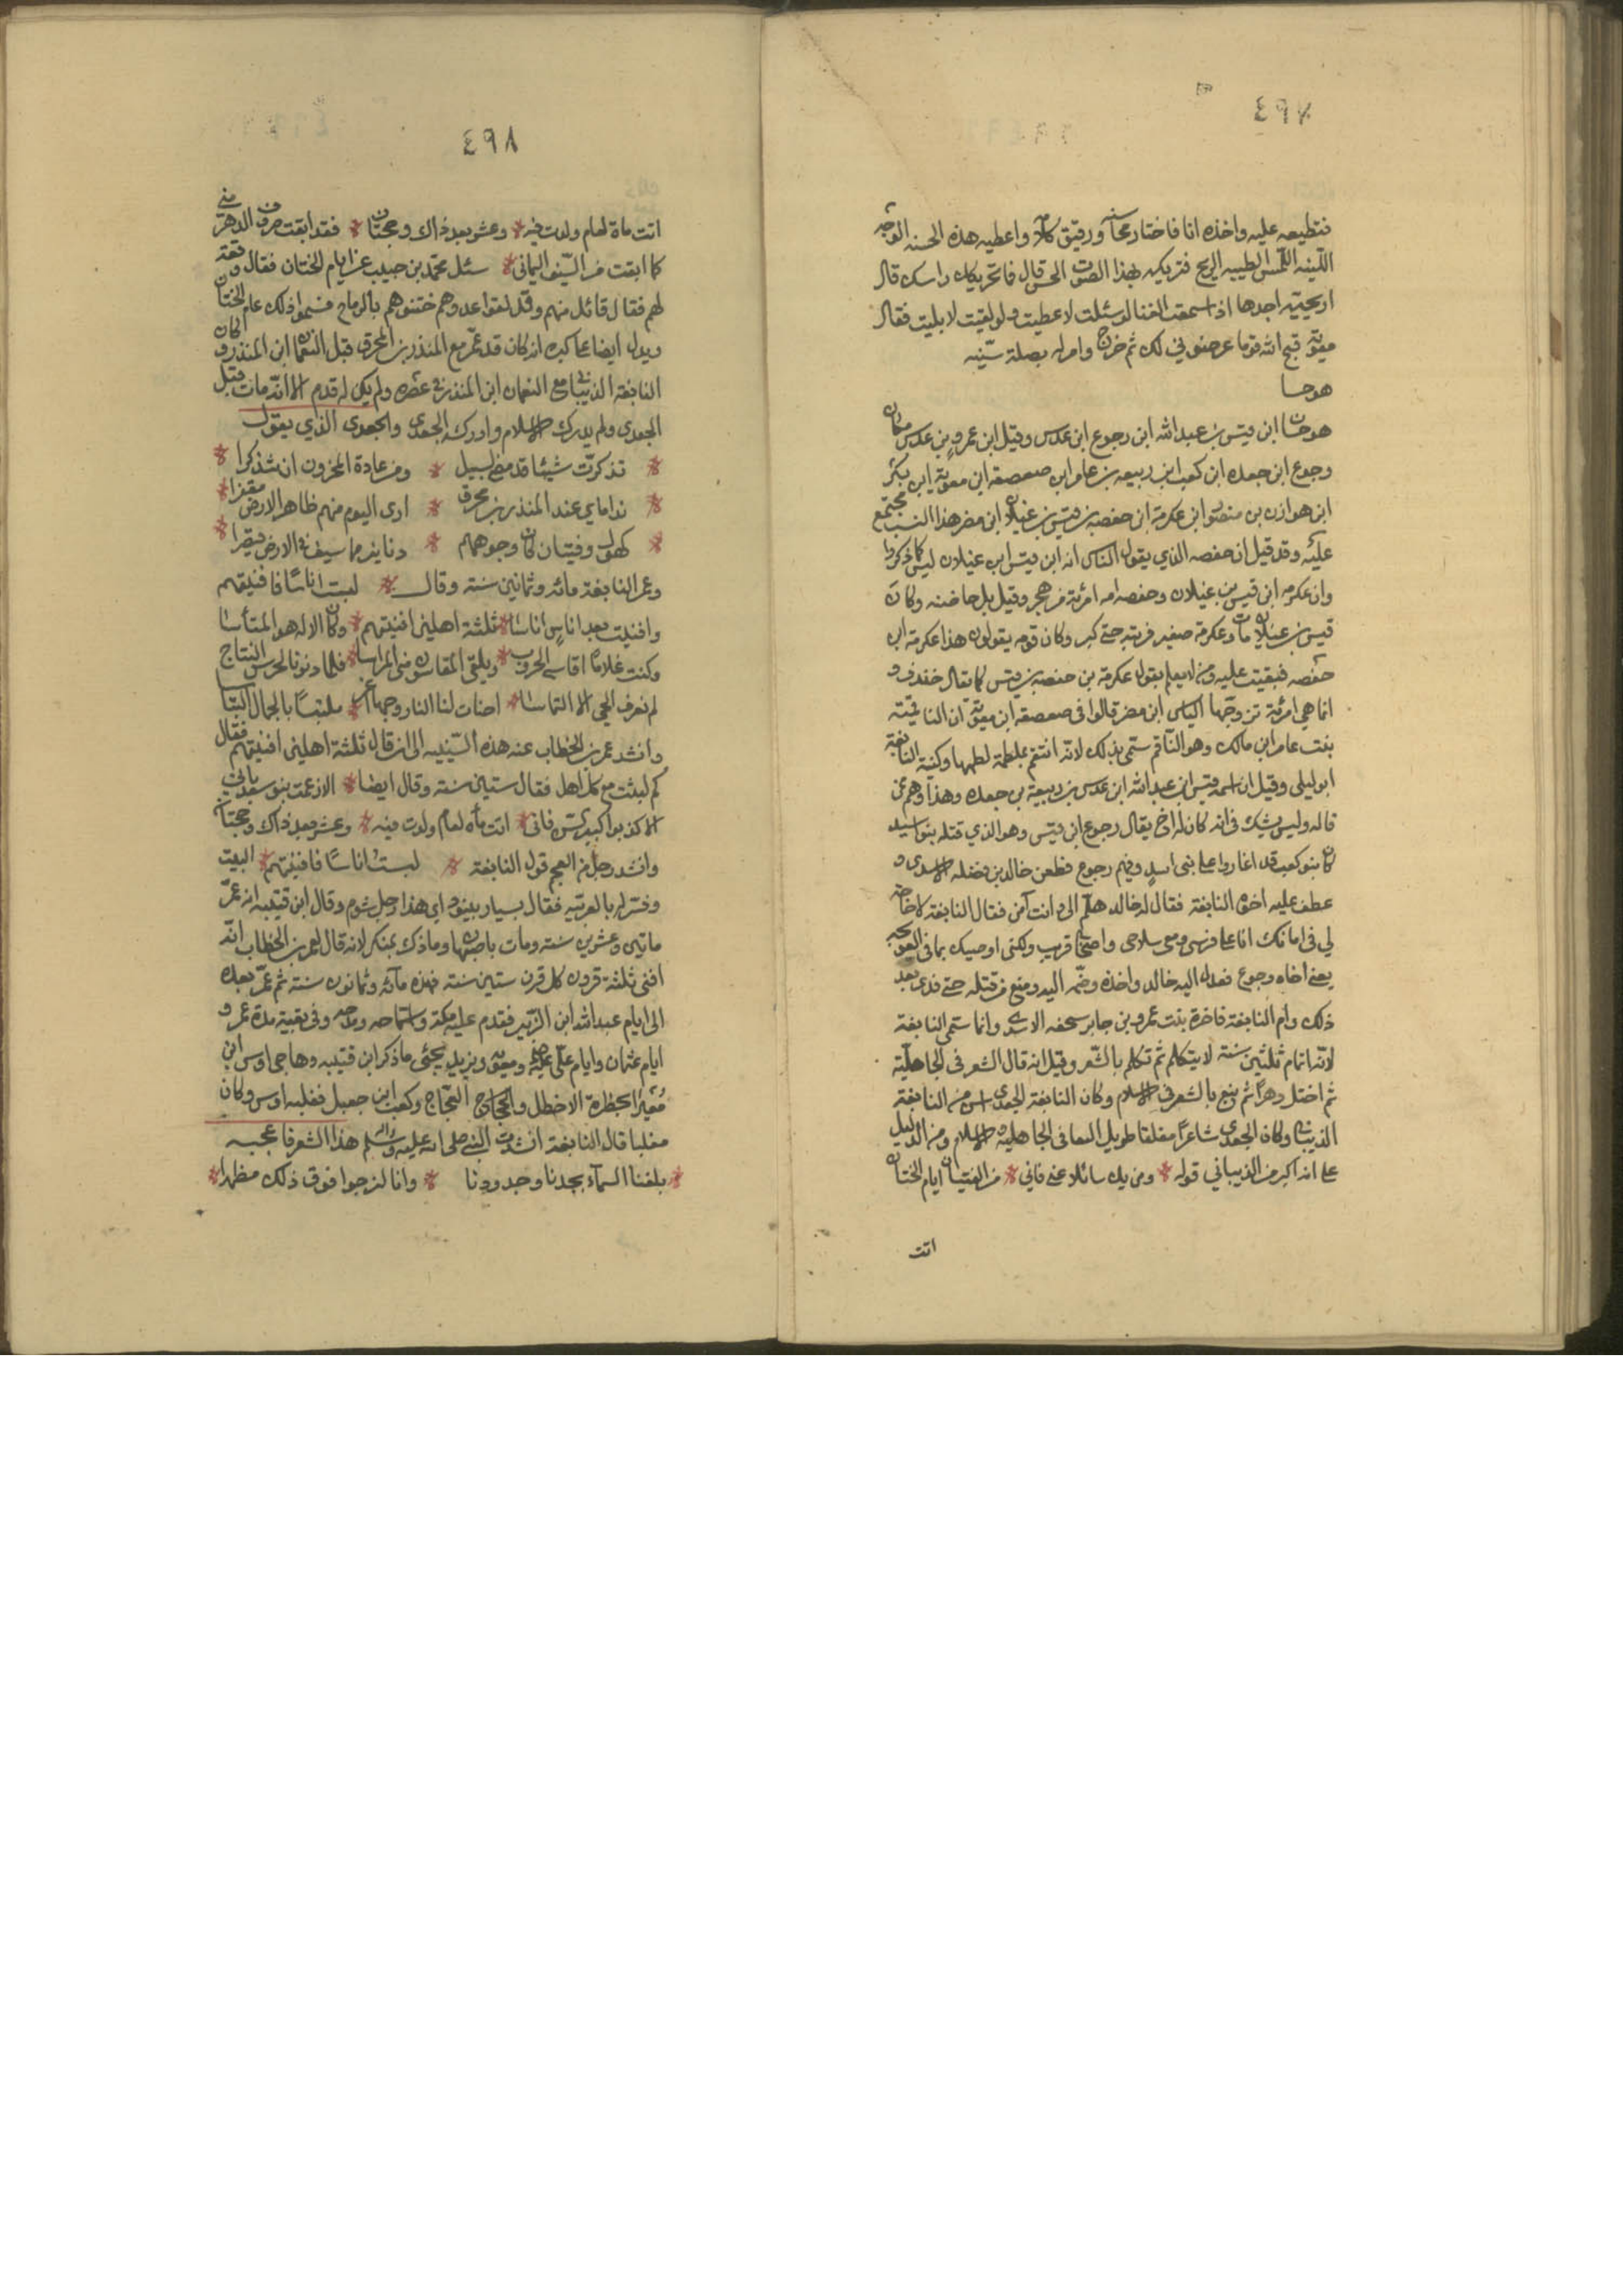 ٤٩٧
فتطيعه عليه واخذه انا فاختار ورقيق كلام واعطيه هذه الحسنه الوجه
اللينه اللمس الطيبه الريح فتربكه بهذا الصوت الحسن قال فما تحريكك راسك قال
اريحيته اجدها اذا سمعت الغنا لو سئلت لاعطيت ولو لقيت لابليت فقال
معوية قبح الله قوما عرضوني لك ثم خرج وامر له بصلة سنيه
هو حسا
هو حسان ابن قيس بن عبد الله ابن رجوع ابن عدس وقيل ابن عمرو بن عدس مكان
وجوع ابن جعده ابن كعب ابن ربيعه بن عامر ابن صعصعه ابن معوية ابن بكر
ابن هوازن بن منصور ابن عكرمة ابن حفصه بن قيس بن عيلان ابن مضر هذا النسب مجتمع
عليه وقد قيل ان حفصه الذي يقول الناس انه ابن قيس ابن عيلان ليس كما ذكروا
وان عكرمه ابن قيس بن عيلان وحفصه امه امرئة من هجر وقيل بل حاضنه وكان
قيس بن عيلان مات وعكرمة صغير فربته حتى كبر وكان قومه يقولون هذا عكرمة ابن
حفصه فبقيت عليه ومن لا يعلم يقول عكرمة بن حفصه بن قيس كما يقال خندف و
انما هي امرئة تزوجها الياس ابن مضر قالوا في صعصعة ابن معوية ان الناقمية
بنت عامر ابن مالك وهو الناقم سمي بذلك لانه انتقم بلطمة لطمها وكنية النابغة
ابو ليلى وقيل ان اسمه قيس ابن عبد الله ابن عدس بن ربيعة بن جعده وهذا وهم ممن
قاله وليس يشك في انه كان له اخ يقال رجوع ابن قيس وهو الذي قتله بنو اسيد
كان بنو كعب قد اغاروا على بني اسد وفيهم رجوع فطعن خالد بن نضله الاسدي و
عطف عليه اخوه النابغة فقال له خالد هلم الي وانت آمن فقال النابغة لا حاجة
لي في امانك انا على فرسي ومعي سلاحي واصحابي قريب ولكني اوصيك بما في العوسجه
يعني اخاه وجوع فعدل اليه خالد واخذه وضمه اليه ومنع من قتله حتى فدي بعد
ذلك وام النابغة فاخرة بنت عمرو بن جابر سحفه الاسدي وانما سمي النابغة
لانه اقام ثلثين سنة لا يتكلم ثم تكلم بالشعر وقيل انه قال الشعر في الجاهلية
ثم اختل دهرا ثم نبغ بالشعر في الاسلام وكان النابغة الجعدي اسن من النابغة
الذبياني وكان الجعدي شاعرا مفلقا طويل البقا في الجاهلية والاسلام ومن الدليل
على انه اكبر من الذبياني قوله * ومن يك سائلا عني فاني * من الفتيان ايام الختان
اتت
٤٩٨
اتت ماة لعام ولدت فيه * وعشر بعد ذاك وحجتان * فقد ابقت صروف الدهر مني
كما ابقت من السيف اليماني * سئل محمد بن حبيب عن ايام الختان فقال وقعة
لهم فقال قائل منهم وقد لقوا عدوهم ختنوهم بالرماح فسموا ذلك عام الختان
ويدل ايضا على كبره انه كان قد عمر مع المنذر بن المحرق قبل النعمان ابن المنذر وكان
النابغة الذبياني مع النعمان ابن المنذر في عصره ولم يكن له قدم الا انه مات قبل
الجعدي ولم يدرك الاسلام وادركه الجعدي والجعدي الذي يقول
* تذكرت شيئا قد مضى لسبيل * ومن عادة المحزون ان يتذكرا *
* نداماي عند المنذر بن محرق * ارى اليوم منهم ظاهر الارض مقفرا *
* كهول وفتيان كان وجوههم * دنانير مما سيف في الارض قيصرا *
وعمر النابغة مائه وثمانين سنة وقال * لبست اناسا فافنيتهم
وافنيت بعد اناس اناسا * ثلثة اهلين افنيتهم * وكان الاله هو المستأسا
وكنت غلاما اقاسي الحروب * ويلقى المقاسون مني المراسا * فلما دنونا لجرس النتاج
لم نعرف الحي الا التماسا * اضات لنا النار وجها اغر * ملتبسا بالجمال التباسا
وانشد عمر بن الخطاب عنه هذه السينيه الى ان قال ثلثة اهلين افنيتهم فقال
كم لبثت مع كل اهل فقال ستين سنة وقال ايضا * الا زعمت بنو سعد باني
الا كذبوا كبير السن فاني * اتت مأه لعام ولدت فيه * وعشر بعد ذاك وحجتان
وانشد رجل من العجم قول النابغة * لبست اناسا فافنيتهم * البيت
وفسر له بالعربيه فقال بسيار بينود اي هذا رجل شوم وقال ابن قتيبه انه عمر
ماتين وعشرين سنة ومات باصبهان وما ذك بمنكر لانه قال لعمر بن الخطاب انه
افنى ثلثة قرون كل قرن ستين سنة فهذه مائه وثمانون سنة ثم عمر بعده
الى ايام عبد الله ابن الزبير فقدم عليه مكة واستماحه ومدحه وفي بقية مدة عمر و
ايام عثمان وايام علي عليه ومعوية ويزيد يجئي ما ذكر ابن قتيبه وهاجى اوس ابن
مغيرا بحضرة الاخطل والعجاج وكعب ابن جعيل فغلبه اوس وكان
مغلبا قال النابغة انشدت النبي صلى الله عليه واله وسلم هذا الشعر فاعجبه
* بلغنا السمآء بجدنا وجدودنا * وانا لنرجوا فوق ذلك مظهرا *